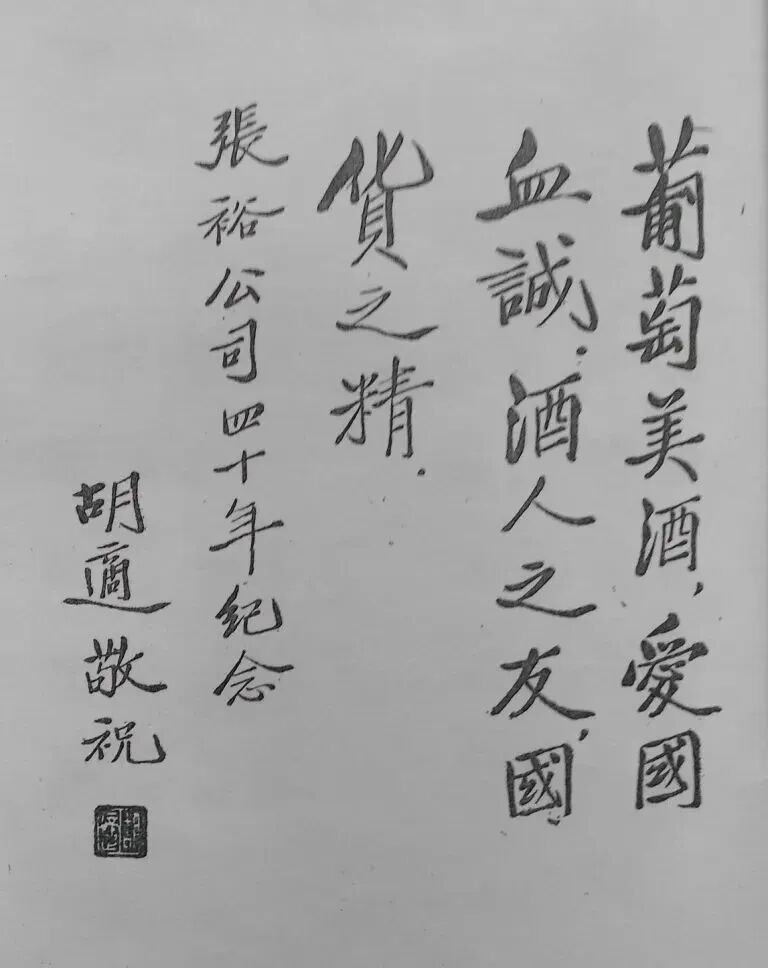 葡萄美酒，愛國
血誠．酒人之友，國
貨之精．
張裕公司四十年紀念
胡適敬祝